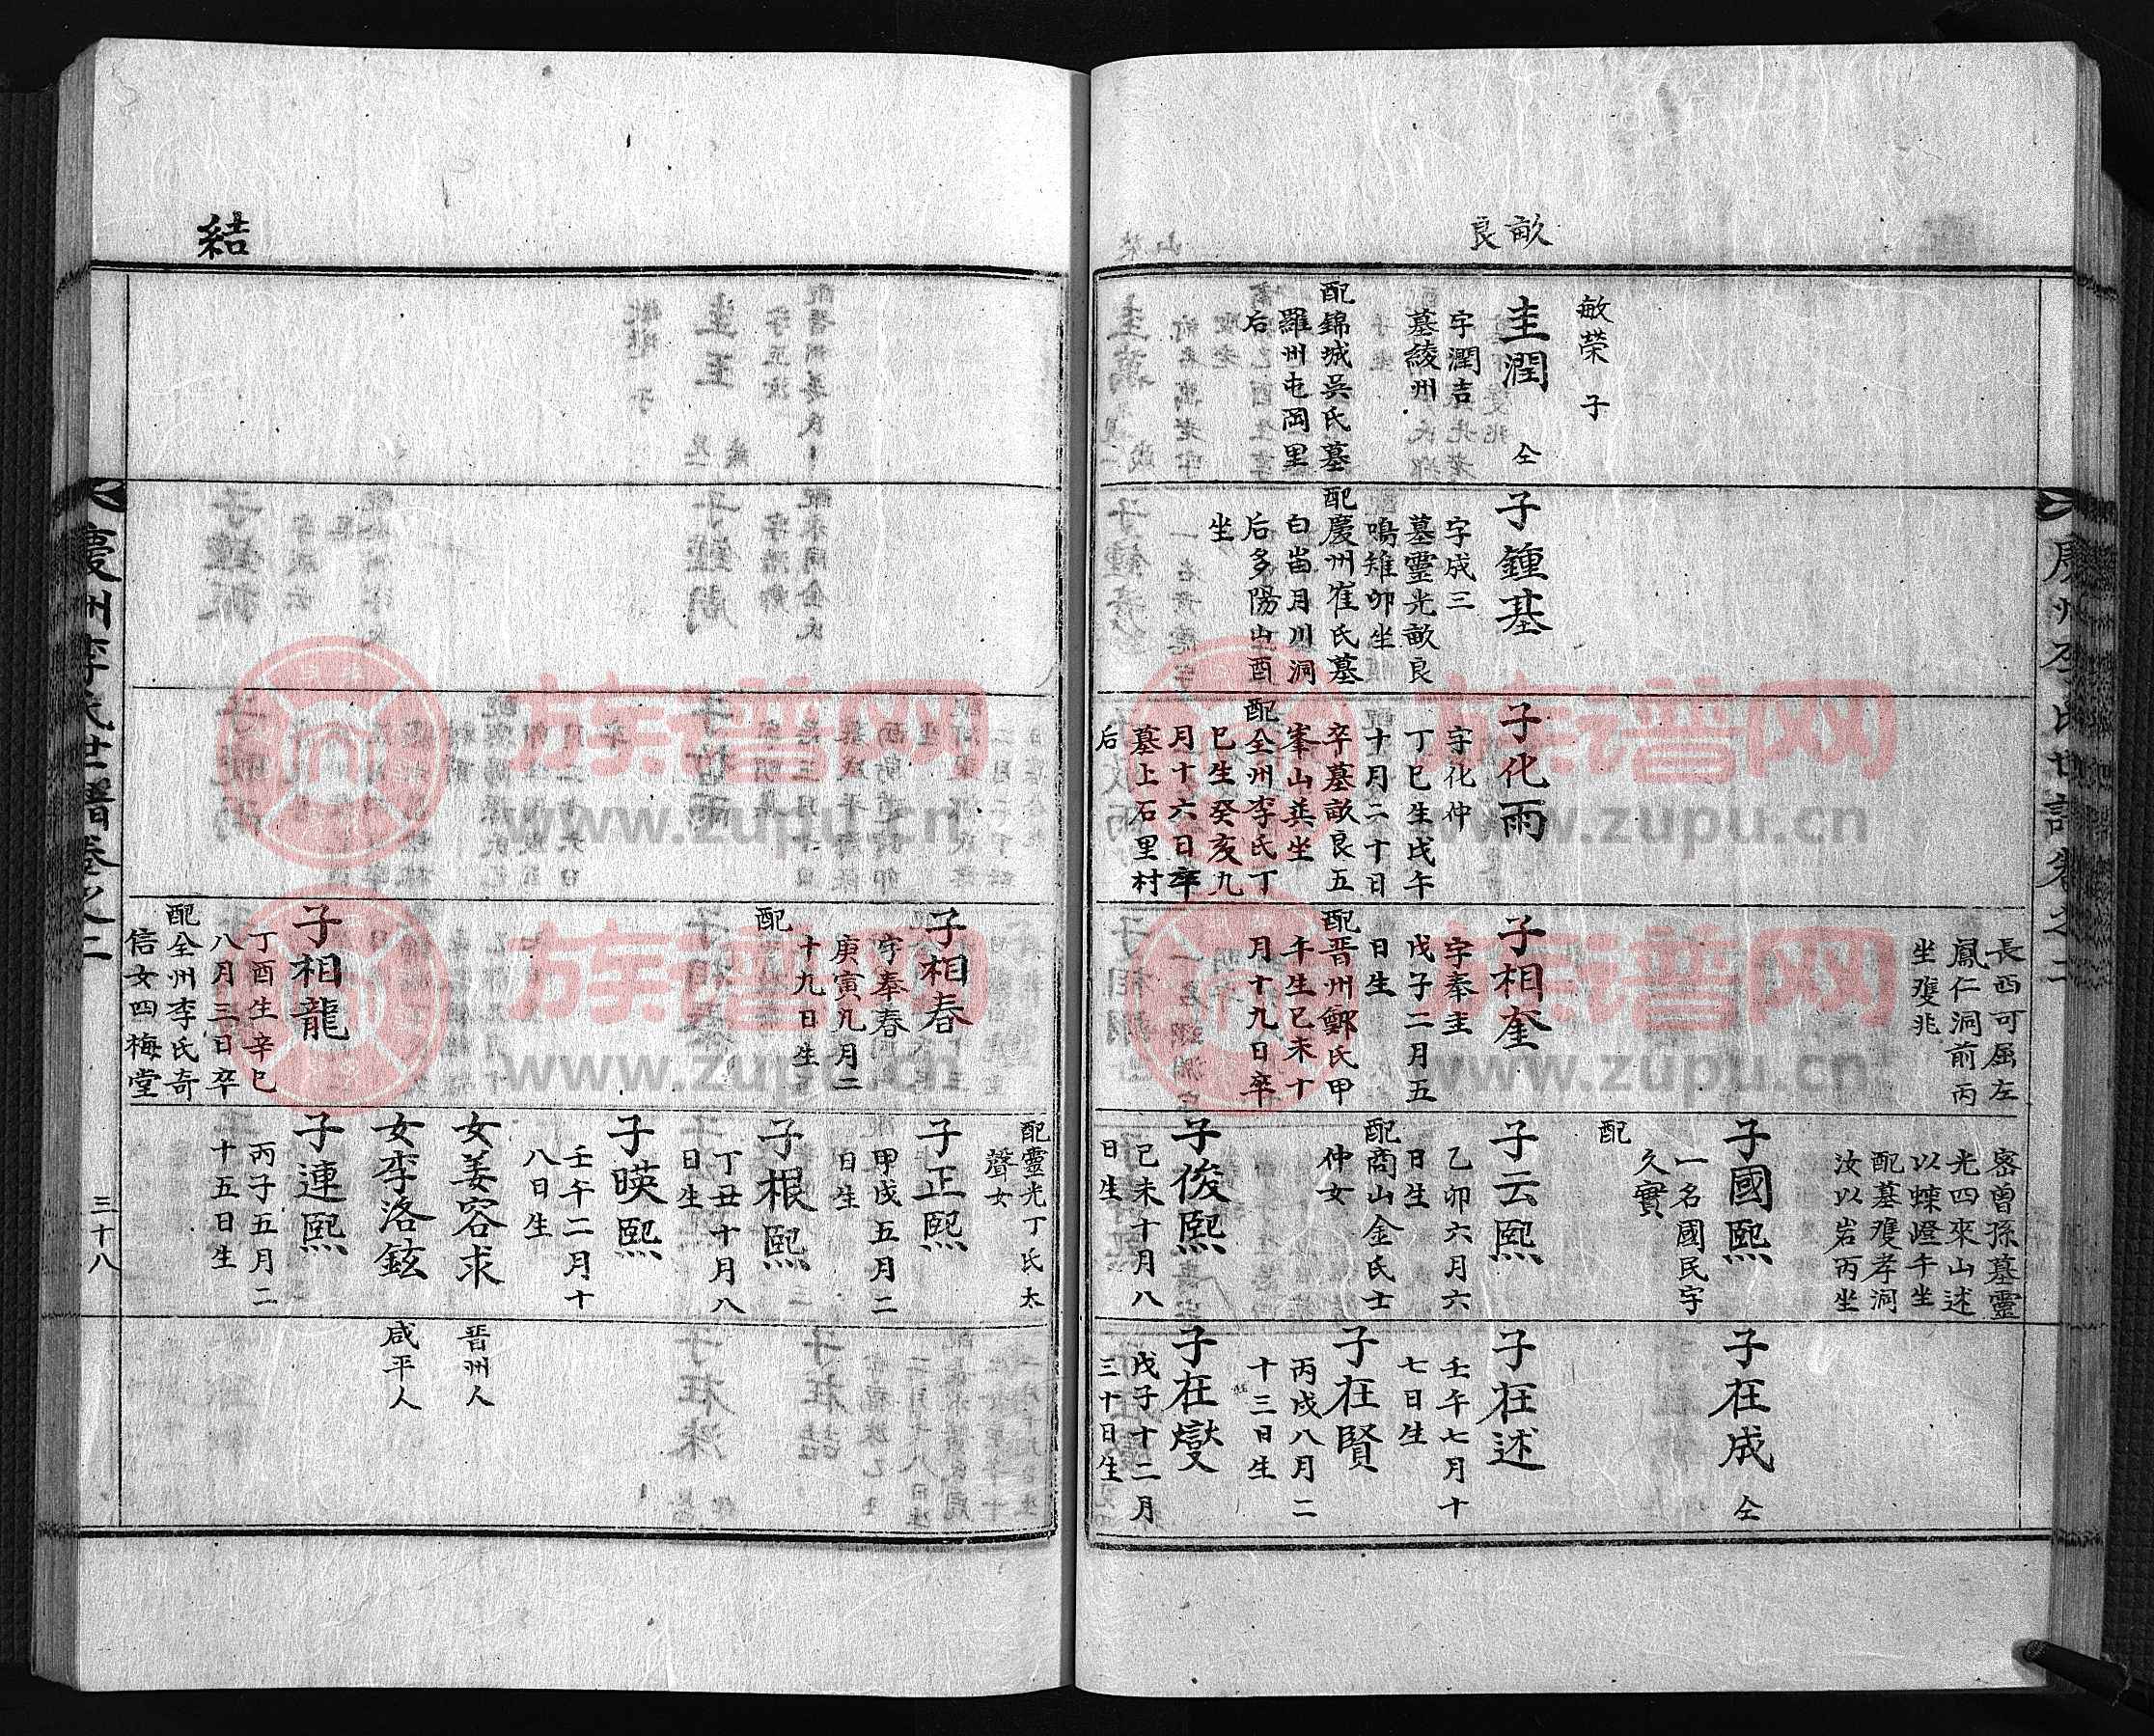 畝
良
敏榮 子
圭潤 仝
字潤吉
墓綾州
配錦城吳氏墓
羅州屯岡里
后
子鍾基
字成三
墓靈光畝良
鳴雉卯坐
配慶州崔氏墓
白峀月川洞
后多陽山酉
坐
子化雨
字化仲
丁巳生戊午
十月二十日
卒墓畝良五
峯山巽坐
配全州李氏丁
巳生癸亥九
月十六日卒
墓上石里村
后
長西可屈左
鳳仁洞前丙
坐雙兆
子相奎
字奉圭
戊子二月五
日生
配晋州鄭氏甲
午生己未十
月十九日卒
密曾孫墓靈
光四來山述
以蝀嶝午坐
配墓雙孝洞
汝以岩丙坐
子國熙
一名國民字
久實
配
子云熙
乙卯六月六
日生
配商山金氏士
仲女
子俊熙
己未十月八
日生
子在成 仝
子在述
壬午七月十
七日生
子在賢
丙戌八月二
十三日生
子在燮
戊子十二月
三十日生
慶州李氏世譜卷之二
結
子相春
字奉春
庚寅九月二
十九日生
配
子相龍
丁酉生辛巳
八月三日卒
配全州李氏奇
信女四梅堂
配靈光丁氏太
聲女
子正熙
甲戌五月二
日生
子根熙
丁丑十月八
日生
子暎熙
壬午二月十
八日生
女姜容求
女李洛鉉
子連熙
丙子五月二
十五日生
晋州人
咸平人
慶州李氏世譜卷之二
三十八
族谱网
www.zupu.cn
族谱网
www.zupu.cn
族谱网
www.zupu.cn
族谱网
www.zupu.cn